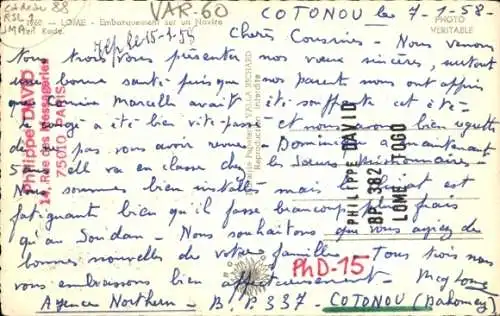 VAR-60
COTONOU le 7-1-58-
88
LOME - Embarquement sur un Navire
PHOTO
VERITABLE
Chers Cousins - Nous venons
tous trois vous présenter nos vœux sincères, surtout
une bonne santé puisque nos parents nous ont appris
que Marcelle avait été souffrante cet été -
a été bien vite passé et nous avons bien regretté
de pas vous avoir revu - Dominique a maintenant
5 ans elle va en classe chez les Sœurs missionnaires -
Nous sommes bien installés mais le climat est
fatiguant bien qu'il fasse beaucoup plus frais
qu'au Soudan - Nous souhaitons que vous ayez de
bonnes nouvelles de votre famille - Tous trois nous
vous embrassons bien affectueusement -
Agence Northern - B.P 337 - COTONOU (Dahomey)
Philippe DAVID
14, Rue des Messageries
75010 PARIS
PHILIPPE DAVID
BP 382
LOME TOGO
Reproduction interdite
PhD-15